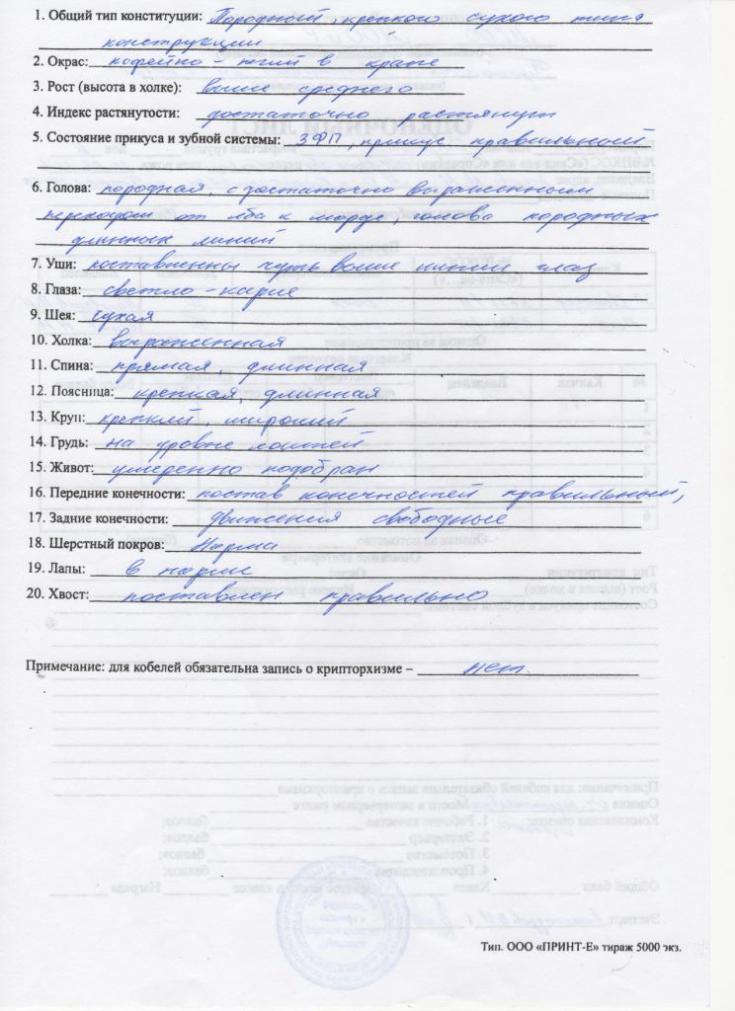 1. Общий тип конституции: Породный, крепкого сухого типа
конструкции
2. Окрас: кофейно - пегий в крапе
3. Рост (высота в холке): выше среднего
4. Индекс растянутости: достаточно растянут
5. Состояние прикуса и зубной системы: ЗФП, прикус правильный
6. Голова: породная, с достаточно выраженным
переходом от лба к морде, голова породных
длинных линий
7. Уши: поставленны чуть выше линии глаз
8. Глаза: светло - карие
9. Шея: сухая
10. Холка: выраженная
11. Спина: прямая, длинная
12. Поясница: крепкая, длинная
13. Круп: крепкий, широкий
14. Грудь: на уровне локтей
15. Живот: умеренно подобран
16. Передние конечности: постав конечностей правильный,
17. Задние конечности: движения свободные
18. Шерстный покров: Норма
19. Лапы: в норме
20. Хвост: поставлен правильно
Примечание: для кобелей обязательна запись о крипторхизме – нет.
Тип. ООО «ПРИНТ-Е» тираж 5000 экз.